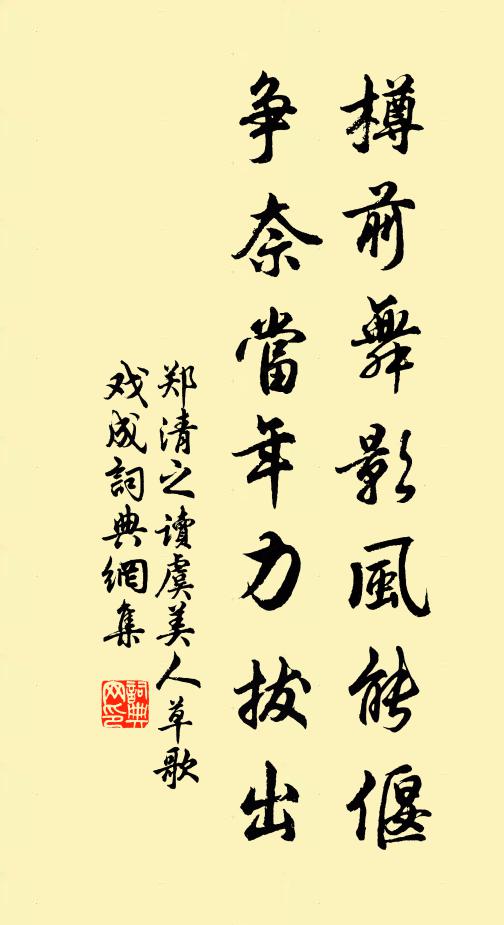 樽前舞影風能偃
争奈當年力拔出
郑清之讀虞美人草歌
戏成詞典網集
詞典
网印